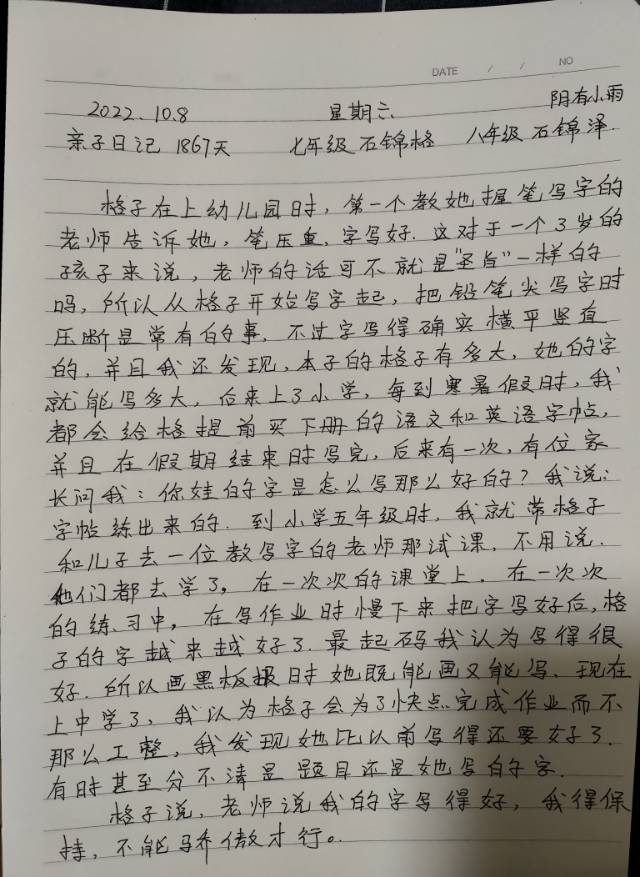 DATE / / NO
2022.10.8 星期六 阴有小雨
亲子日记 1867天 七年级 石锦格 八年级 石锦泽.
格子在上幼儿园时，第一个教她握笔写字的
老师告诉她，笔压重，字写好. 这对于一个3岁的
孩子来说，老师的话可不就是“圣旨”一样的
吗，所以从格子开始写字起，把铅笔尖写字时
压断是常有的事，不过字写得确实横平竖直
的，并且我还发现，本子的格子有多大，她的字
就能写多大，后来上了小学，每到寒暑假时，我
都会给格提前买下册的语文和英语字帖，
并且在假期结束时写完，后来有一次，有位家
长问我：你娃的字是怎么写那么好的？我说：
字帖练出来的. 到小学五年级时，我就带格子
和儿子去一位教写字的老师那试课，不用说.
他们都去学了，在一次次的课堂上，在一次次
的练习中，在写作业时慢下来把字写好后，格
子的字越来越好了. 最起码我认为写得很
好. 所以画黑板报时她既能画又能写. 现在
上中学了，我以为格子会为了快点完成作业而不
那么工整，我发现她比以前写得还要好了.
有时甚至分不清是题目还是她写的字.
格子说，老师说我的字写得好，我得保
持，不能骄傲才行。